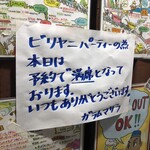 ビリヤニパーティーの為
本日は
予約で満席となって
おります。
いつもありがとうございます。
ガラムマサラ
OUT
OK!!